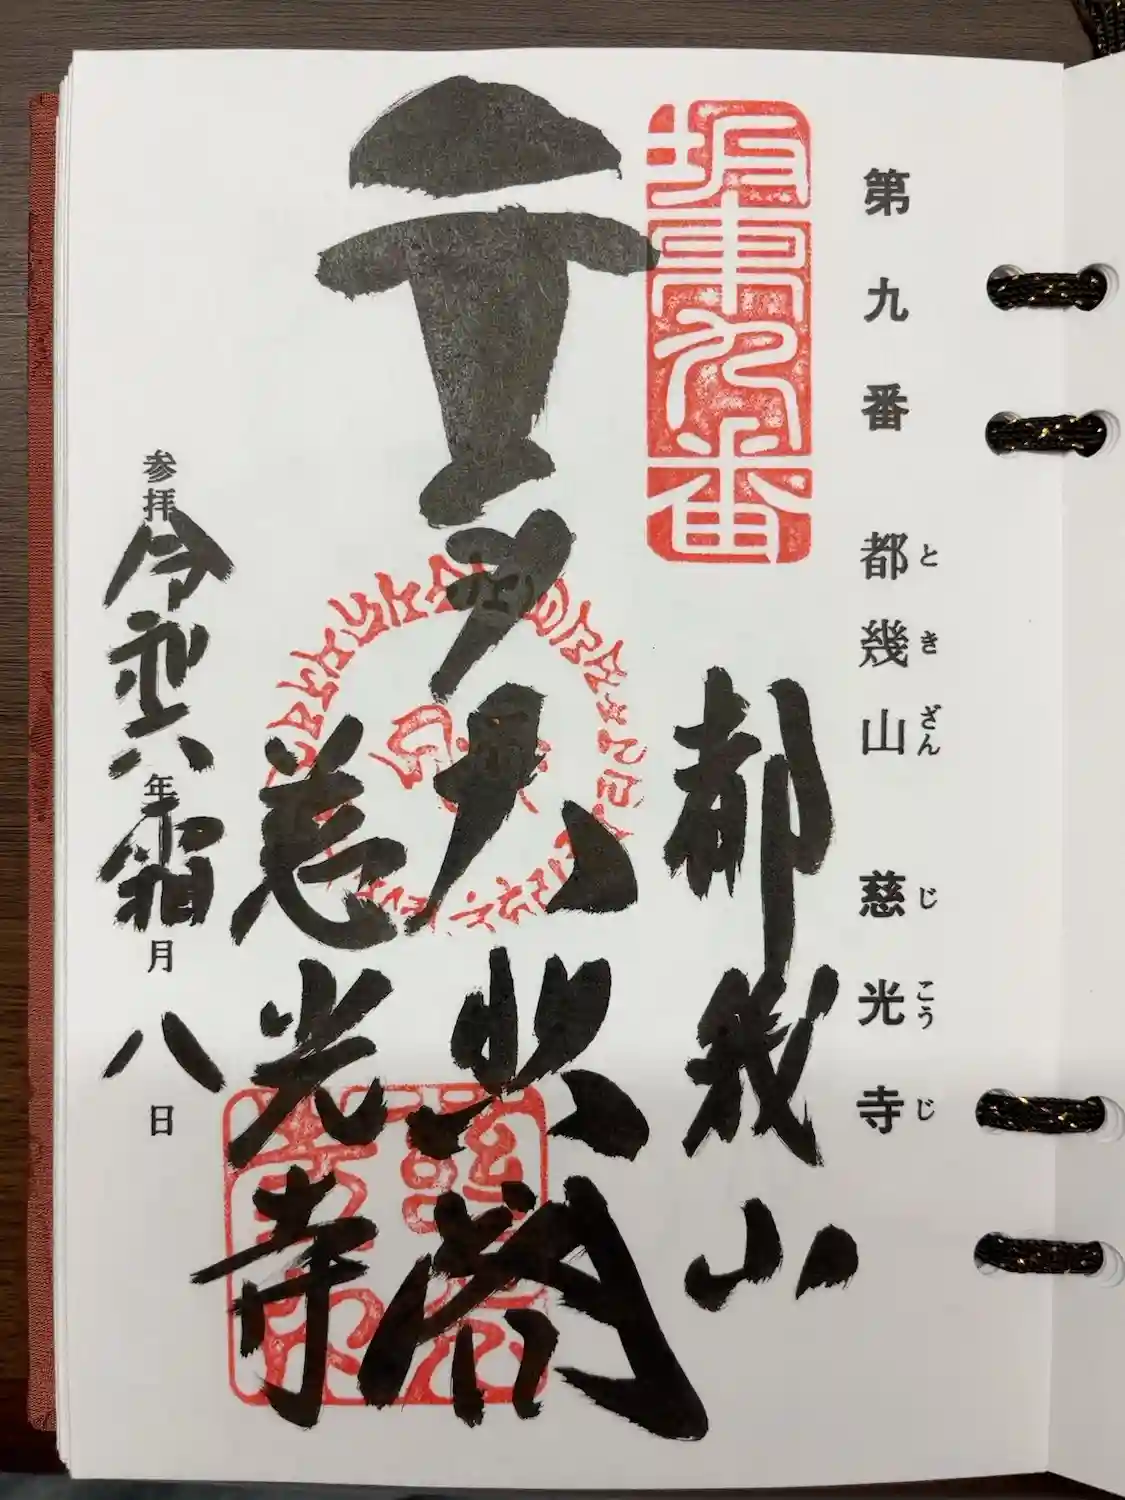 第九番 都幾山 慈光寺
ときざん じこうじ
坂東九番
都幾山
大悲閣
慈光寺
参拝 令和六年霜月八日